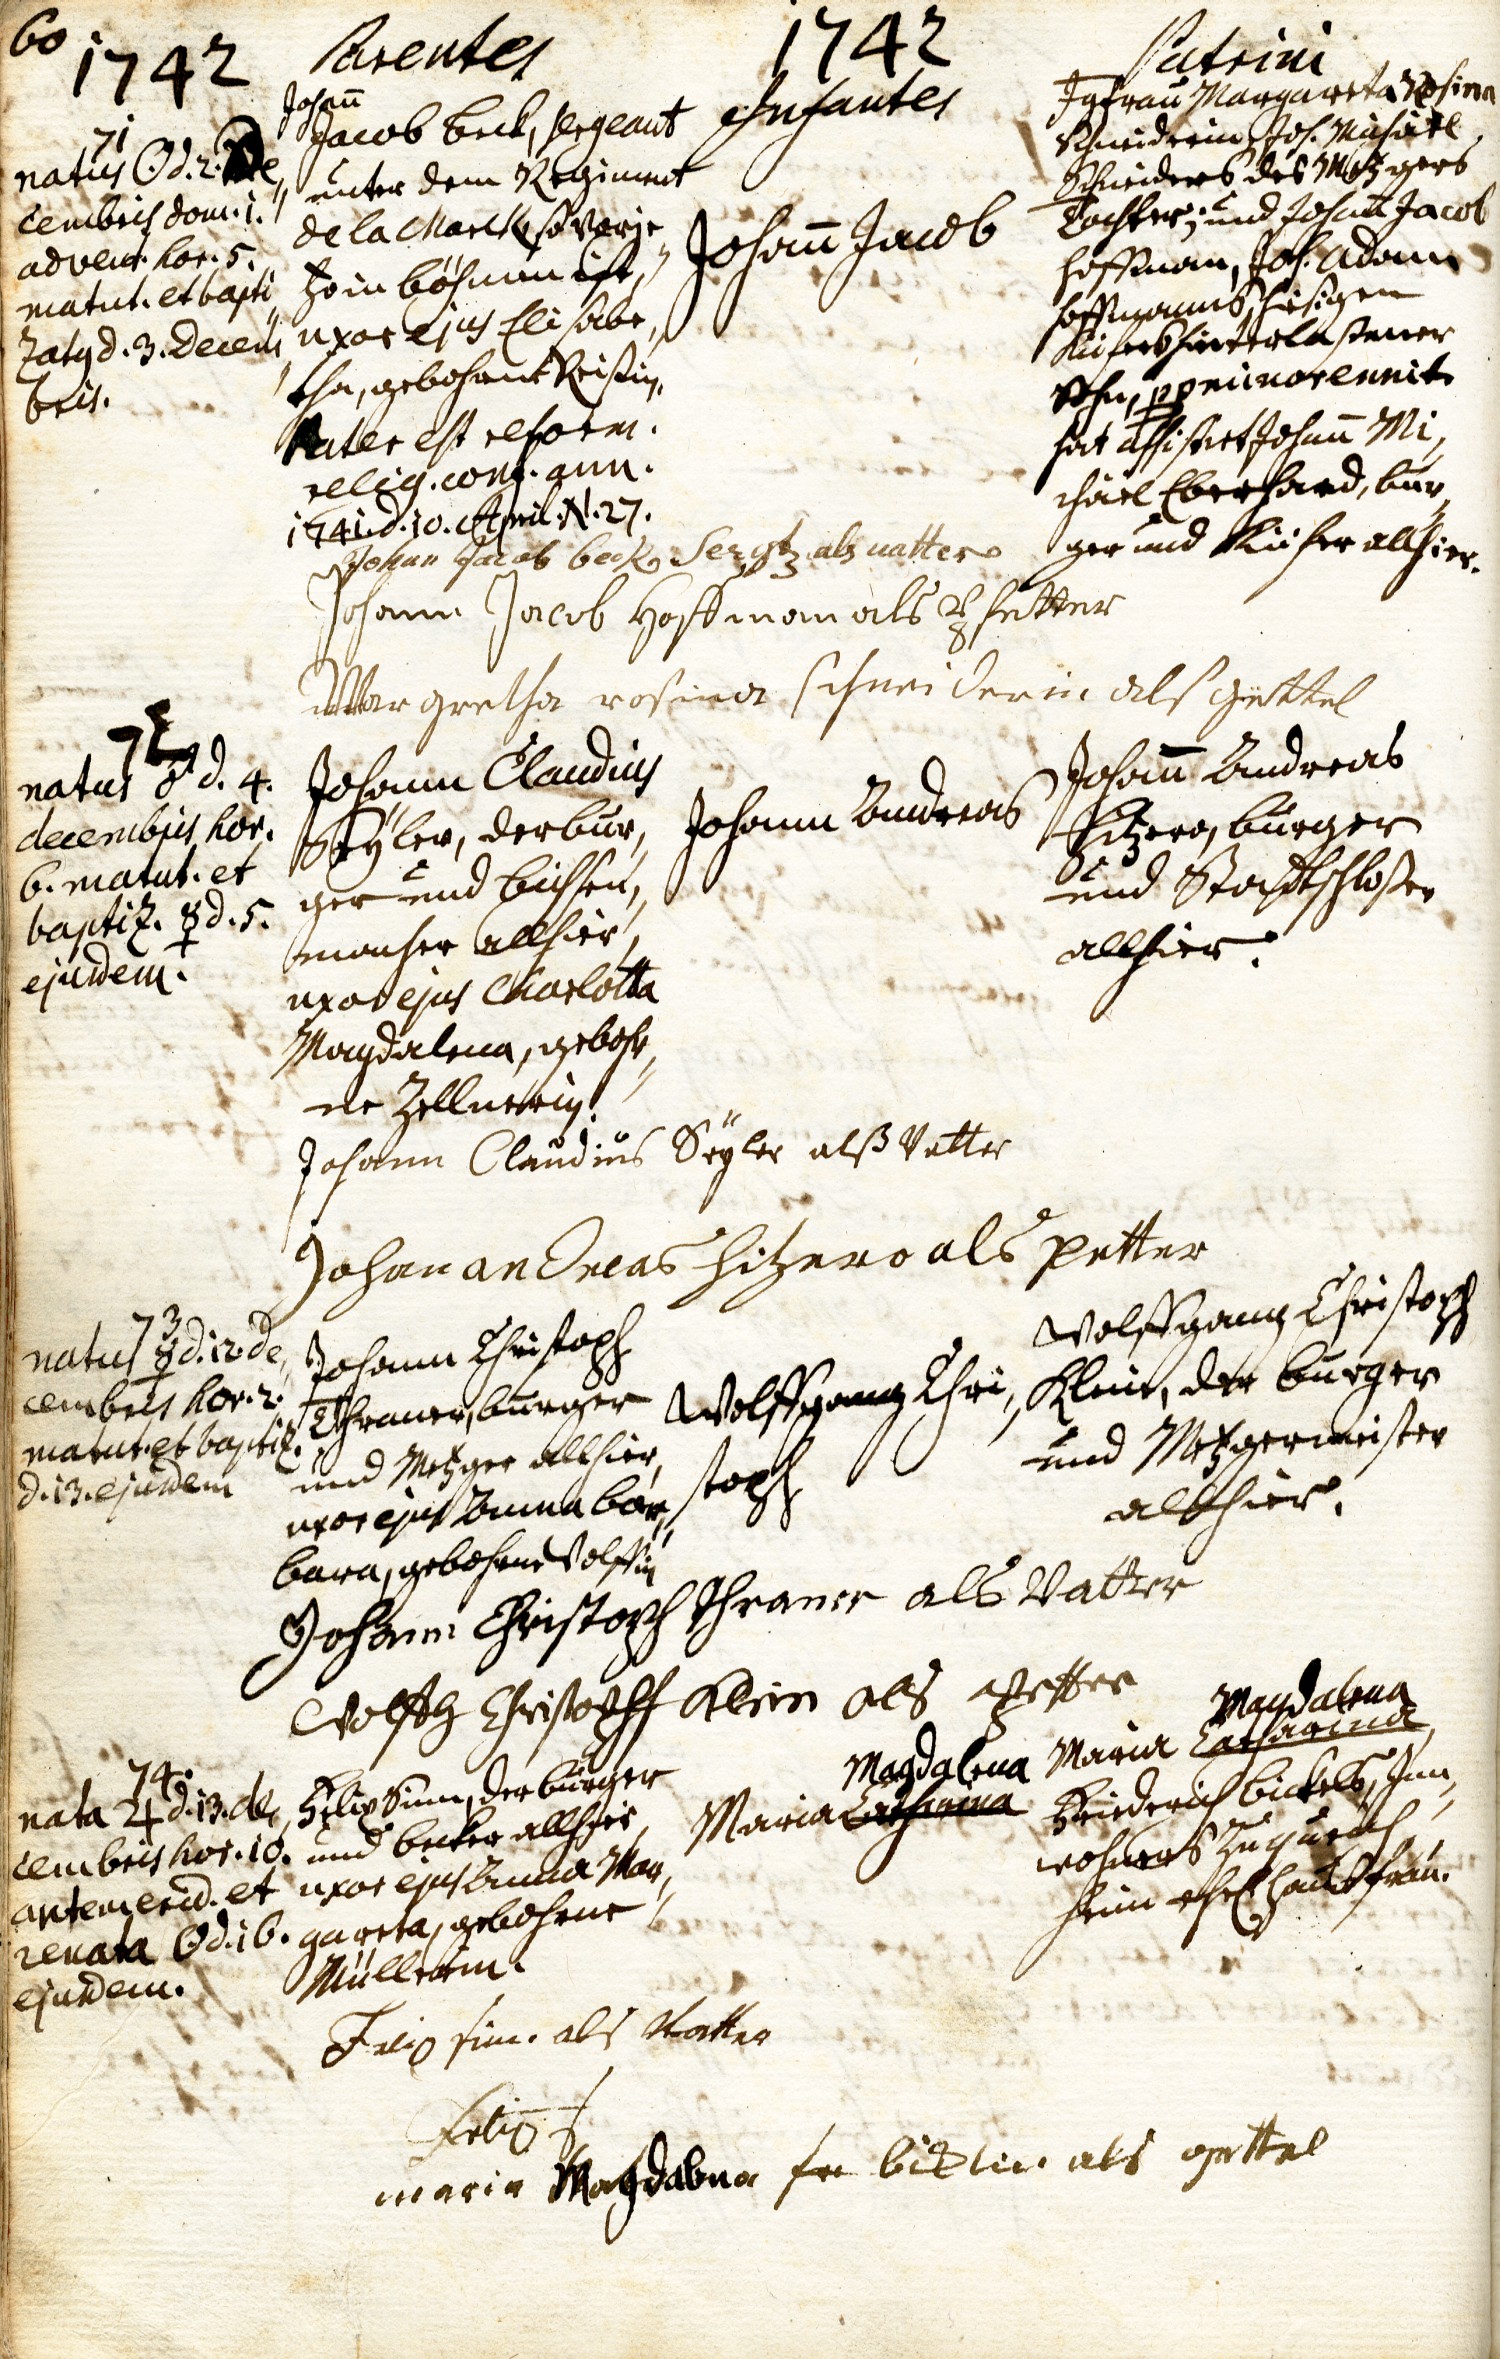 60
1742 Parentes 1742 Patrini
Infantes
71
natus ☉ d. 2. De„
cembris dom. 1.
advent. hor. 5.
matut. et bapti„
zatus d. 3. Decem„
bris.
Johann
Jacob Beck, sergeant
unter dem Regiment
de la Marck, so vorje„
tzo in Böhmen ist,
uxor ejus Elisabe„
tha, gebohrne
Pater est reform.
relig. conf. ann.
1741. d. 10. April. N. 27.
Johann Jacob
Jgfrau Margareta Rosina
Schneiderin, Joh. Michael
Schneiders des Metzgers
Tochter; und Johann Jacob
Hoffmann, Joh. Adam
Hoffmanns, hiesigen
Kiefers hinterlassener
Sohn, pro priimorennit
hat assistirt Johann Mi„
chael Eberhard, bur„
ger und Kiefer allhier.
Johan Jacob beck Sergtz als vatter
Johann Jacob Hoffman als Pfetter
Margretha rosina schneiderin als gettel
72
natus ♂ d. 4.
decembris, hor.
6. matut. et
baptiz. ☿ d. 5.
ejusdem.
Johann Claudius
Seÿler, der bur„
ger und Büchsen„
macher allhier,
uxor ejus Charlotta
Magdalena, gebohr„
ne Zellnerin.
Johann Andreas
Johann Andreas
Hitzero, burger
und Stadtschlosser
allhier.
Johann Claudius Seÿler alß Vatter
Johan andreas Hitzero als petter
73
natus ☿ d. 12. de„
cembris hor. 2.
matut. et baptiz.
d. 13. ejusdem
Johann Christoph
Thraner, burger
und Metzger allhier,
uxor ejus Anna Bar„
bara, gebohrne Wolffin
Wolffgang Chri„
stoph
Wolffgang Christoph
Klein, der burger
und Metzgermeister
allhier.
Johann Christoph Thraner als Vatter
Wolffg Christopff Klein als Petter
74.
nata ♃ d. 13. de„
cembris hor. 10.
antemerid. et
renata ☉ d. 16.
ejusdem.
Felix Simm, der burger
und becker allhier,
uxor ejus Anna Mar„
gareta, gebohrne
Müllerin.
Magdalena
Maria Catharina
Magdalena
Maria Catharina,
Friederich Bickels, Inn„
wohners zu
heim ehel. Hausfrau.
Felix sim. als Vatter
Felix
maria Magdalena bicklin. als gettel